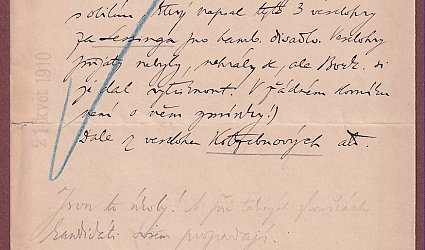 který napsal tyto 3 veselohry
za Lessinga pro hamb. divadlo. Veselohry
přijaty nebyly, nehrály se, ale Bock si
je dal vytisknout! V žádném
není o něm zmínky!)
Dále z veseloher Kotzebuových atd.
21. květ 1910
Jsou to úkoly! A při takových
kandidáti propadají.